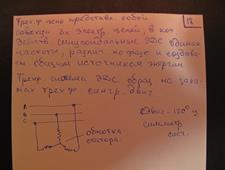 18
Трёхф. цепь представ. собой
совокуп. их электр. цепей, в кот.
действ. синусоидальные ЭДС единой
частоты, различ. по фазе и создавае.
общим источником энергии.
Трехф. система ЭДС образ. на зажи-
мах трехф. синхр. двиг.
A
B
C
обмотка
статора
- 120° у
симметр.
сист.